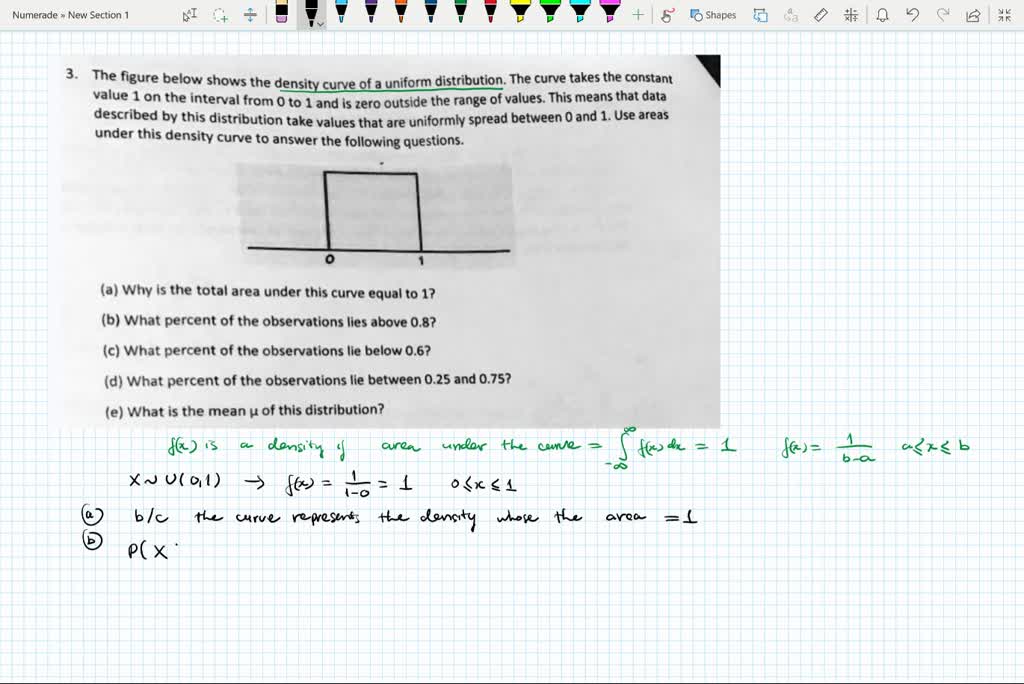 Numerade » New Section 1
Shapes
3. The figure below shows the density curve of a uniform distribution. The curve takes the constant
value 1 on the interval from 0 to 1 and is zero outside the range of values. This means that data
described by this distribution take values that are uniformly spread between 0 and 1. Use areas
under this density curve to answer the following questions.
0 1
(a) Why is the total area under this curve equal to 1?
(b) What percent of the observations lies above 0.8?
(c) What percent of the observations lie below 0.6?
(d) What percent of the observations lie between 0.25 and 0.75?
(e) What is the mean μ of this distribution?
f(x) is a density if area under the curve = ∫_{-∞}^{∞} f(x) dx = 1 f(x) = 1/(b-a) a≤x≤b
X~U(0,1) → f(x) = 1/(1-0) = 1 0≤x≤1
(a) b/c the curve represents the density whose the area = 1
(b) P(X